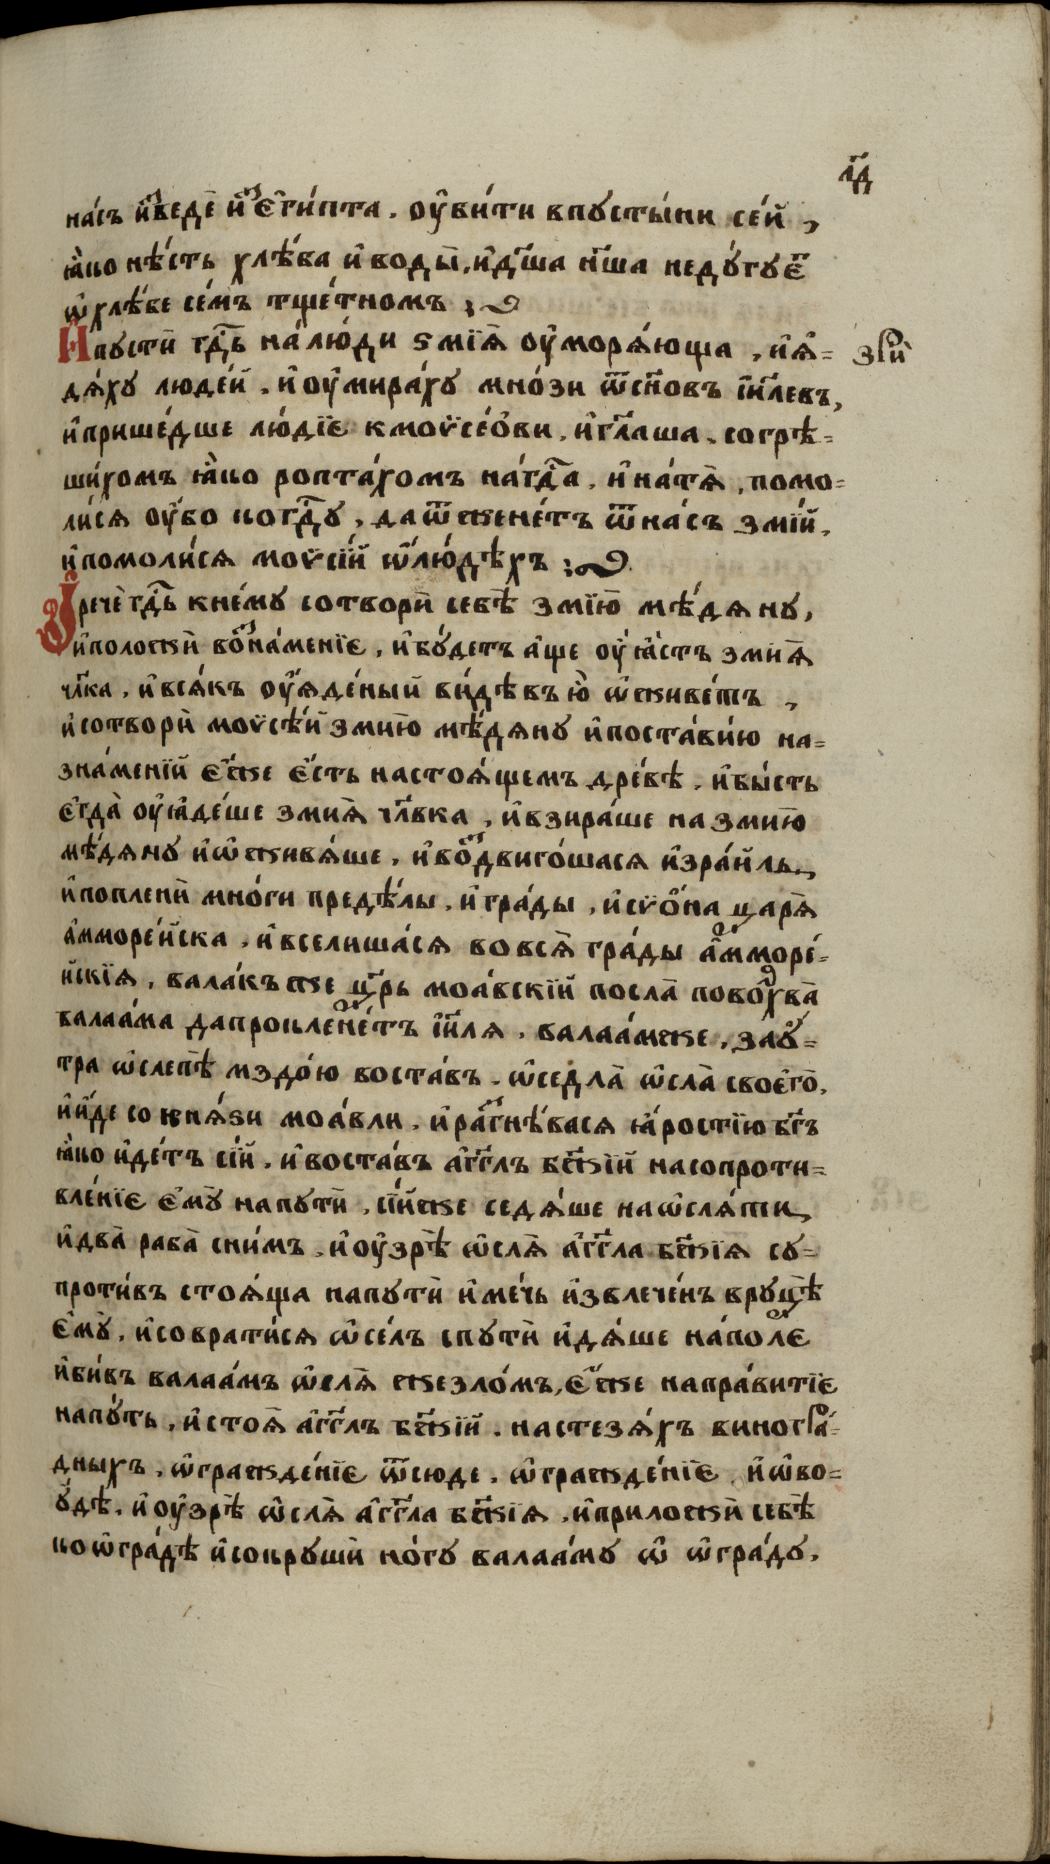 л҃д
на́съ и҆зведѐ и҆зъ є҆ги́пта . оу҆би́ти впусты́ни се́й ,
ꙗ҆́ко нѣ́сть хлѣ́ба и҆ воды̀ , и҆ дш҃а нш҃а недꙋ́гуетъ
ѡ҆ хлѣ́бе се́мъ тще́тномъ ;
И҆ пустѝ гдⷭ҇ь на́ лю́ди ѕмїѧ̑ оу҆морѧ́юща , и҆ ꙗ҆=
зрѝ
дѧ́ху люде́й , и҆ оу҆мира́ху мно́зи ѿ сн҃овъ і҆и҃левъ ,
и҆ прише́дше лю́дїє к моѵсе́ови , и҆ гл҃аша , согрѣ=
ши́хомъ ꙗ҆́ко ропта́хомъ на́ гдⷭ҇а , и҆ на́ тѧ̀ , помо=
ли́сѧ оу҆́бо ко гдⷭ҇у , да ѿженє́тъ ѿ на́съ змїй ,
и҆ помоли́сѧ моѵсі́й ѡ҆ лю́дѣхъ ;
И҆ речѐ гдⷭ҇ь к нему̀ сотворѝ себѣ̀ змїю̀ мѣ́дѧну ,
и҆ положѝ во зна́менїє , и҆ бꙋ́детъ а҆́ще оу҆ꙗ́стъ змиѧ̀
чл҃ка , и҆ всѧ́къ оу҆ѧде́ный ви́дѣвъ ю҆̀ ѡ҆живе́тъ ,
и҆ сотворѝ моѵсѣ́й змию̀ мѣ́дѧну и҆ поста́ви ю҆ на=
зна́менїй є҆́же є҆́сть на стоѧ́щемъ дре́вѣ , и҆ бы́сть
є҆гда̀ оу҆ꙗде́ше змиѧ̀ чл҃вка , и҆ взира́ше на змию̀
мѣ́дѧну и҆ ѡ҆живѧ́ше , и҆ воздвиго́шасѧ и҆зра́иль ,
и҆ поплени́ мно́ги предѣ́лы , и҆ гра́ды , и҆ сѵѻ́на царѧ̀
а҆мморе́йска , и҆ вселиша́сѧ во всѧ̀ гра́ды а҆мморе́=
йскїѧ , вала́къ же цр҃ь моа́вскїй посла̀ по волхва̀
валаа́ма да прокленє́тъ і҆и҃лѧ , валаа́мже , за оу҆́=
тра ѡ҆слепѣ̀ мздо́ю воста́въ , ѡ҆седла̀ ѡ҆сла̀ своего̀ ,
и҆ и҆́де со кнѧ́ѕи моа́вли , и҆ разгнѣ́васѧ ꙗ҆́ростїю бг҃ъ
ꙗ҆́ко и҆де́тъ сі́й , и҆ воста́въ а҆́гг҃лъ бж҃їй на сопроти=
вле́нїє є҆му̀ на путѝ , сі́йже седѧ́ше на ѡ҆слѧ́ти ,
и҆ два̀ раба̀ с ни́мъ , и҆ оу҆зрѣ̀ ѡ҆слѧ̀ а҆́гг҃ла бж҃їѧ су=
проти́въ стоѧ́ща на путѝ и҆ ме́чь и҆звлече́нъ в руцѣ̀
є҆му̀ , и҆ совра́тисѧ ѡ҆се́лъ с путѝ и҆дѧ́ше на́ полє
и҆ би́въ валаа́мъ ѡ҆слѧ̀ жезло́мъ , є҆́же напра́витїє
на пꙋ́ть , и҆ стоѧ̀ а҆́гг҃лъ бж҃їй . на стезѧ́хъ виногра́=
дныхъ , ѡ҆гражде́нїє ѿсюде , ѡ҆гражде́нїє и҆ ѡ҆во=
ю҆́дѣ . и҆ оу҆зрѣ̀ ѡ҆слѧ̀ а҆́гг҃ла бж҃їѧ , и҆ приложѝ себѣ̀
ко ѡ҆гра́дѣ и҆ сокрушѝ но́гу валаа́му ѡ҆ ѡ҆гра́ду ,